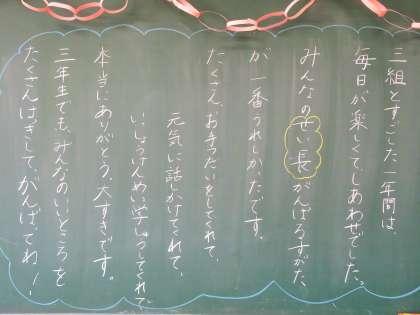 三組とすごした一年間は、
毎日が楽しくてしあわせでした。
みんなのせい長がんばるすがた
が一番うれしかったです。
たくさんお手つだいをしてくれて、
元気に話しかけてくれて、
いっしょうけんめい学しゅうしてくれて
本当にありがとう。大すきです。
三年生でも、みんなのいいところを
たくさんはっきして、がんばってね！